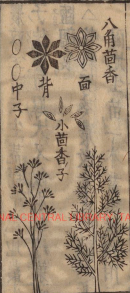 八角茴香
面
背
中子
小茴香子